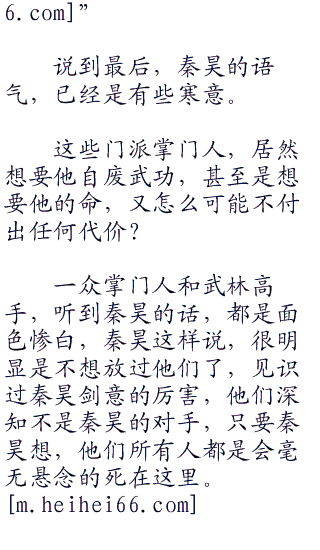 6.com]”
说到最后，秦昊的语
气，已经是有些寒意。
这些门派掌门人，居然
想要他自废武功，甚至是想
要他的命，又怎么可能不付
出任何代价？
一众掌门人和武林高
手，听到秦昊的话，都是面
色惨白，秦昊这样说，很明
显是不想放过他们了，见识
过秦昊剑意的厉害，他们深
知不是秦昊的对手，只要秦
昊想，他们所有人都是会毫
无悬念的死在这里。
[m.heihei66.com]